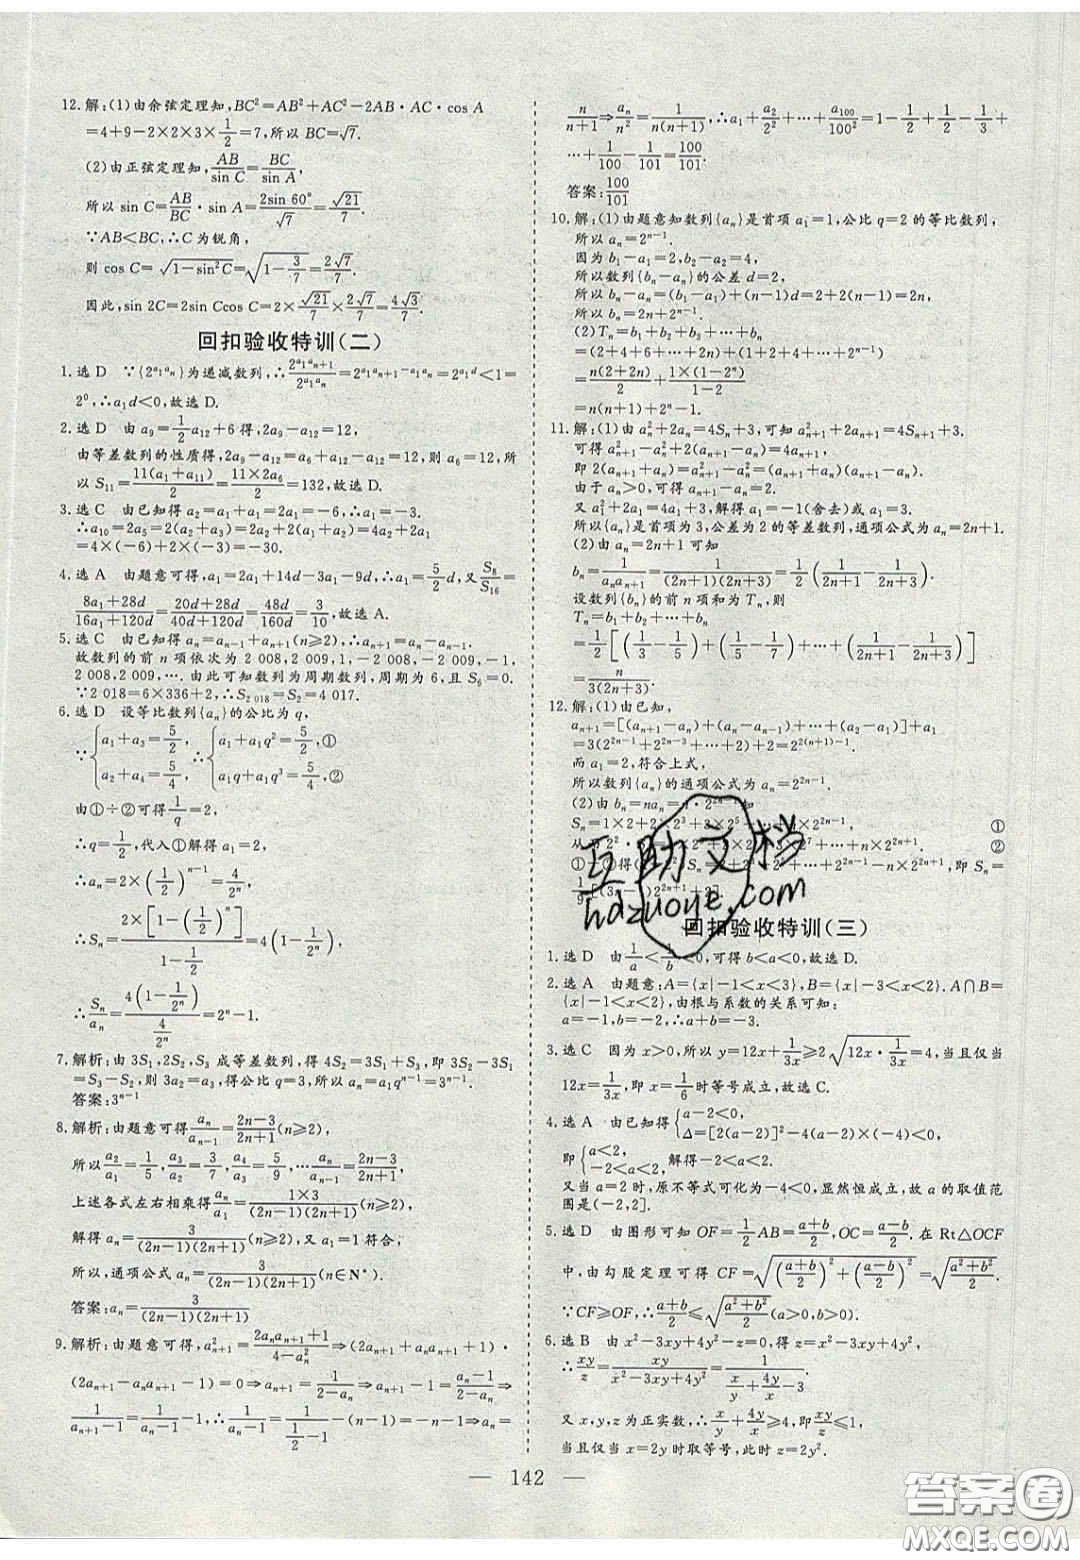 12.解:(1)由余弦定理知,BC²=AB²+AC²-2AB·AC·cos A
=4+9-2×2×3×1/2=7,所以 BC=√7.
(2)由正弦定理知,AB/sin C=BC/sin A,
所以 sin C=AB/BC·sin A=2sin 60°/√7=√21/7.
∵AB<BC,∴C为锐角,
则 cos C=√(1-sin²C)=√(1-3/7)=2√7/7.
因此,sin 2C=2sin Ccos C=2×√21/7×2√7/7=4√3/7.
回扣验收特训(二)
1.选 D ∵{2^(a₁aₙ)}为递减数列,∴2^(a₁aₙ₊₁)/2^(a₁aₙ)=2^(a₁aₙ₊₁-a₁aₙ)=2^(a₁d)<1=
2⁰,∴a₁d<0,故选 D.
2.选 D 由 a₉=1/2a₁₂+6 得,2a₉-a₁₂=12,
由等差数列的性质得,2a₉-a₁₂=a₆+a₁₂-a₁₂=12,则 a₆=12,所
以 S₁₁=11(a₁+a₁₁)/2=11×2a₆/2=132,故选 D.
3.选 C 由已知得 a₂=a₁+a₁=2a₁=-6,∴a₁=-3.
∴a₁₀=2a₅=2(a₂+a₃)=2a₂+2(a₁+a₂)=4a₂+2a₁
=4×(-6)+2×(-3)=-30.
4.选 A 由题意可得,a₁=2a₁+14d-3a₁-9d,∴a₁=5/2d,又S₈/S₁₆=
8a₁+28d/16a₁+120d=20d+28d/40d+120d=48d/160d=3/10,故选 A.
5.选 C 由已知得 aₙ=aₙ₋₁+aₙ₊₁(n≥2),∴aₙ₊₁=aₙ-aₙ₋₁.
故数列的前 n 项依次为 2 008,2 009,1,-2 008,-2 009,-1,
2 008,2 009,….由此可知数列为周期数列,周期为 6,且 S₆=0.
∵2 018=6×336+2,∴S₂ ₀₁₈=S₂=4 017.
6.选 D 设等比数列{aₙ}的公比为 q,
∵{a₁+a₃=5/2, a₂+a₄=5/4, ∴{a₁+a₁q²=5/2,① a₁q+a₁q³=5/4,②
由①÷②可得1/q=2,
∴q=1/2,代入①解得 a₁=2,
∴aₙ=2×(1/2)ⁿ⁻¹=4/2ⁿ,
∴Sₙ=2×[1-(1/2)ⁿ]/(1-1/2)=4(1-1/2ⁿ),
∴Sₙ/aₙ=4(1-1/2ⁿ)/(4/2ⁿ)=2ⁿ-1.
7.解析:由 3S₁,2S₂,S₃ 成等差数列,得 4S₂=3S₁+S₃,即 3S₂-3S₁
=S₃-S₂,则 3a₂=a₃,得公比 q=3,所以 aₙ=a₁qⁿ⁻¹=3ⁿ⁻¹.
答案:3ⁿ⁻¹
8.解析:由题意可得aₙ/aₙ₋₁=2n-3/2n+1(n≥2),
所以a₂/a₁=1/5,a₃/a₂=3/7,a₄/a₃=5/9,…aₙ/aₙ₋₁=2n-3/2n+1,
上述各式左右相乘得aₙ/a₁=1×3/(2n-1)(2n+1)(n≥2),
解得 aₙ=3/(2n-1)(2n+1)(n≥2),又 a₁=1符合,
所以,通项公式 aₙ=3/(2n-1)(2n+1)(n∈N*).
答案:aₙ=3/(2n-1)(2n+1)
9.解析:由题意可得,a²ₙ₊₁=2aₙaₙ₊₁+1/4-a²ₙ⇒(2aₙ₊₁-aₙaₙ₊₁+1)·
(2aₙ₊₁-aₙaₙ₊₁-1)=0⇒aₙ₊₁=1/2-aₙ⇒aₙ₊₁-1=aₙ-1/2-aₙ⇒
1/aₙ₊₁-1=1/aₙ-1-1⇒1/aₙ-1=1/(1/2-1)-(n-1)=-n-1⇒aₙ=
n/n+1⇒aₙ/n²=1/n(n+1),∴a₁+a₂/2²+…+a₁₀₀/100²=1-1/2+1/2-1/3+
…+1/100-1/101=100/101.
答案:100/101
10.解:(1)由题意知数列{aₙ}是首项 a₁=1,公比 q=2 的等比数列,
所以 aₙ=2ⁿ⁻¹.
因为 b₁-a₁=2,b₂-a₂=4,
所以数列{bₙ-aₙ}的公差 d=2,
所以 bₙ-aₙ=(b₁-a₁)+(n-1)d=2+2(n-1)=2n,
所以 bₙ=2n+2ⁿ⁻¹.
(2)Tₙ=b₁+b₂+b₃+…+bₙ
=(2+4+6+…+2n)+(1+2+4+…+2ⁿ⁻¹)
=n(2+2n)/2+1×(1-2ⁿ)/1-2
=n(n+1)+2ⁿ-1.
11.解:(1)由 a²ₙ+2aₙ=4Sₙ+3,可知 a²ₙ₊₁+2aₙ₊₁=4Sₙ₊₁+3.
可得 a²ₙ₊₁-a²ₙ+2(aₙ₊₁-aₙ)=4aₙ₊₁,
即 2(aₙ₊₁+aₙ)=a²ₙ₊₁-a²ₙ=(aₙ₊₁+aₙ)(aₙ₊₁-aₙ).
由于 aₙ>0,可得 aₙ₊₁-aₙ=2.
又 a²₁+2a₁=4a₁+3,解得 a₁=-1(舍去)或 a₁=3.
所以{aₙ}是首项为 3,公差为 2 的等差数列,通项公式为 aₙ=2n+1.
(2)由 aₙ=2n+1 可知
bₙ=1/aₙaₙ₊₁=1/(2n+1)(2n+3)=1/2(1/2n+1-1/2n+3).
设数列{bₙ}的前 n 项和为 Tₙ,则
Tₙ=b₁+b₂+…+bₙ
=1/2[(1/3-1/5)+(1/5-1/7)+…+(1/2n+1-1/2n+3)]=
n/3(2n+3).
12.解:(1)由已知,
aₙ₊₁=[(aₙ₊₁-aₙ)+(aₙ-aₙ₋₁)+…+(a₂-a₁)]+a₁
=3(2²ⁿ⁻¹+2²ⁿ⁻³+…+2)+2=2²⁽ⁿ⁺¹⁾⁻¹.
而 a₁=2,符合上式,
所以数列{aₙ}的通项公式为 aₙ=2²ⁿ⁻¹.
(2)由 bₙ=naₙ=n·2²ⁿ⁻¹知
Sₙ=1×2+2×2³+3×2⁵+…+n×2²ⁿ⁻¹, ①
从而 2²·Sₙ=1×2³+2×2⁵+3×2⁷+…+n×2²ⁿ⁺¹. ②
①-② … +2²ⁿ⁻¹-n×2²ⁿ⁺¹,即 Sₙ=
1/9[(3n-1)2²ⁿ⁺¹+2].
回扣验收特训(三)
1.选 D 由1/a<1/b<0,可得 b<a<0,故选 D.
2.选 A 由题意:A={x|-1<x<3},B={x|-3<x<2}.A∩B=
{x|-1<x<2},由根与系数的关系可知:
a=-1,b=-2,∴a+b=-3.
3.选 C 因为 x>0,所以 y=12x+1/3x≥2√(12x·1/3x)=4,当且仅当
12x=1/3x,即 x=1/6时等号成立,故选 C.
4.选 A 由已知得{a-2<0, Δ=[2(a-2)]²-4(a-2)×(-4)<0,
即{a<2, -2<a<2,解得-2<a<2.
又当 a=2 时,原不等式可化为-4<0,显然恒成立,故 a 的取值范
围是(-2,2].
5.选 D 由图形可知 OF=1/2AB=a+b/2,OC=a-b/2.在 Rt△OCF
中,由勾股定理可得 CF=√((a+b/2)²+(a-b/2)²)=√(a²+b²/2).
∵CF≥OF,∴a+b/2≤√(a²+b²/2)(a>0,b>0).
6.选 B 由 x²-3xy+4y²-z=0,得 z=x²-3xy+4y²,
∴xy/z=xy/x²-3xy+4y²=1/(x/y+4y/x-3)
又 x,y,z 为正实数,∴x/y+4y/x≥4,即xy/z≤1,
当且仅当 x=2y 时取等号,此时 z=2y².
— 142 —
互助文档
hdzuoye.com
答案圈
MXQE.COM